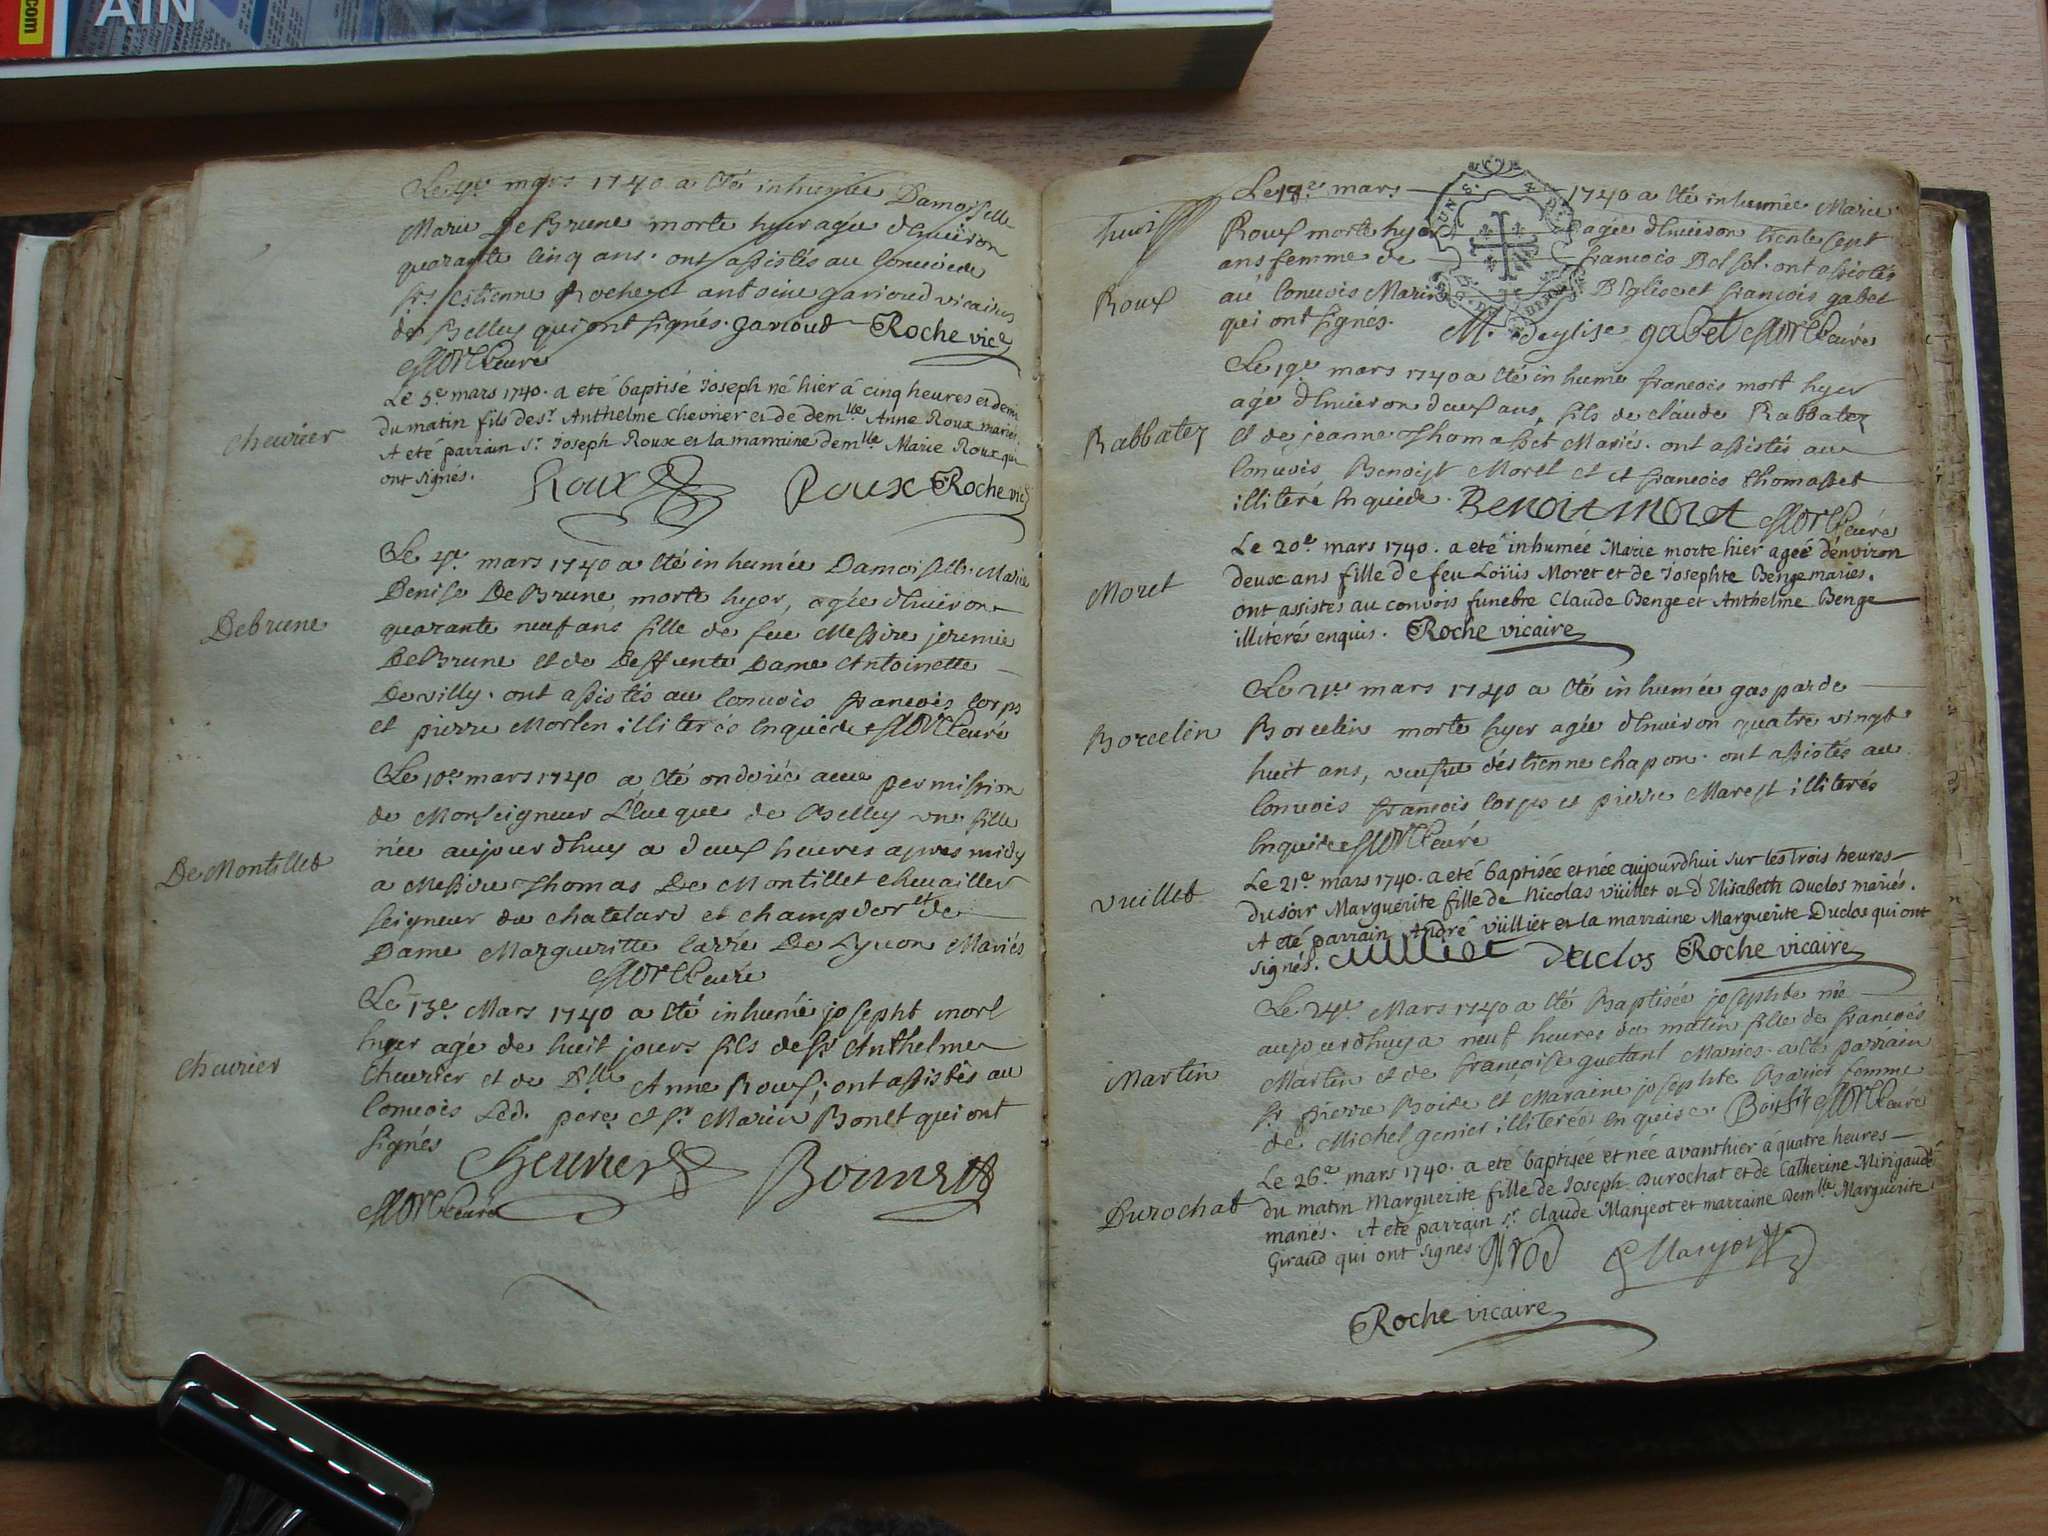 .com
AIN
Le 4e mars 1740 a été inhumée Damoiselle
Marie De Brune morte hyer agée d'hnviron
quarante cinq ans. ont assistés au Convoi de
srs Estienne Roche et antoine garioud vicaires
de Belley qui ont signés. garioud Roche vice
curé
Le 5e mars 1740. a eté baptisé Joseph né hier á cinq heures et demi
du matin fils de sr. Anthelme Chevrier et de demlle Anne Roux mariés.
A eté parrain sr. Joseph Roux et la marraine demlle Marie Roux qui
ont signés. Roux Roux Roche vic
chevrier
Le 4e. mars 1740 a été inhumée Damoiselle Marie
Denise De Brune, morte hyer, agée d'hnviron
quarante neuf ans fille de feu Messire jeremie
De Brune et de Deffunte Dame Antoinette
De villy. ont assistés au Convois francois Corps
et pierre Morlin illiterés Enquis de curé
Debrune
Le 10e. mars 1740 a été ondoiée avec permission
de Monseigneur L'Eveque de Belley une fille
née aujourdhuy a deux heures apres midy
a Messire Thomas De Montillet chevailler
seigneur du chatelard et champdor et de
Dame Margueritte Carrie De Lyon Mariés
curé
De Montillet
Le 13e. Mars 1740 a été inhumé josepht mort
hyer agé de huit jours fils de sr Anthelme
Chevrier et de Dlle Anne Roux; ont assistés au
Convois Led. pere et sr Marin Bonet qui ont
signés Chevrier Bonnet
curé
chevrier
Le 18e mars 1740 a été inhumée Marie
Roux morte hyer agée d'hnviron trente sept
ans femme de francois Bolsol. ont assistés
au Convois Marin D'Eglise et francois gabet
qui ont signes. M. deglise gabet curé
huit
Roux
Le 19e mars 1740 a été inhumé francois mort hyer
agé d'hnviron deux ans, fils de claude Rabbatez
et de jeanne Thomasset Mariés. ont assistés au
Convois Benoist Moret et et francois Thomasset
illiteré Enquis de. Benoit moret curé
Rabbatez
Le 20e mars 1740. a eté inhumée Marie morte hier ageé d'environ
deux ans fille de feu Loüis Moret et de Josephte Benge mariés.
ont assistés au convois funebre Claude Benge et Anthelme Benge
illiterés enquis. Roche vicaire
Moret
Le 21e mars 1740 a été inhumée gasparde
Borcelin morte hyer agée d'hnviron quatre vingt
huit ans, veufue d'éstienne chapon. ont assistés au
Convois francois Corps et pierre Marest illiterés
Enquis de curé
Borcelin
Le 21e mars 1740. a eté baptisée et née aujourdhui sur les trois heures
du soir Marguérite fille de Nicolas vüillet et d'Elisabeth Duclos mariés.
A eté parrain André vüillet et la marraine Marguerite Duclos qui ont
signés. vuilliet duclos Roche vicaire
vuillet
Le 24e. Mars 1740 a été Baptisée josephte née
aujourdhuy a neuf heures du matin fille de francois
Martin et de francoise guetant Mariés. a été parrain
sr. pierre Boise et Maraine josephte Barier femme
de Michel genier illiterés enquise. curé
Martin
Le 26e mars 1740. a eté baptisée et née avanthier á quatre heures
du matin Marguerite fille de Joseph Durochat et de Catherine Mirigaudé
mariés. A eté parrain sr. claude Manjeot et marraine demlle Marguerite
Giraud qui ont signés. Manjot
Durochat
Roche vicaire